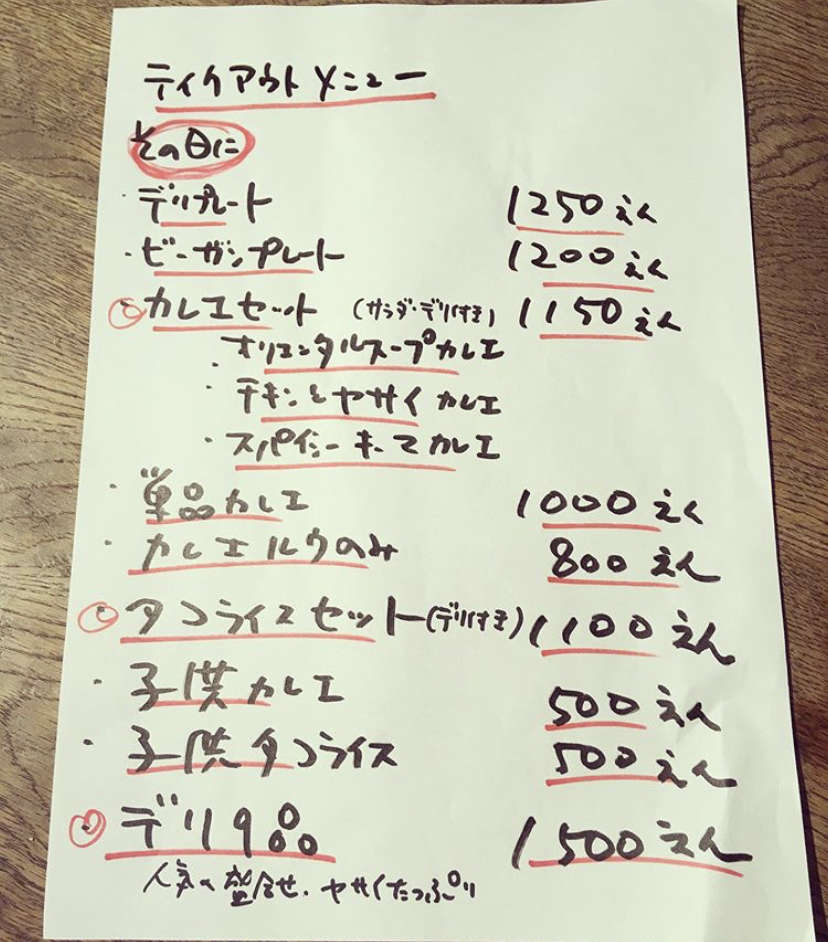 テイクアウトメニュー
その日に
・デリプレート 1250えん
・ビーガンプレート 1200えん
・カレエセット (サラダ・デリ付き) 1150えん
・オリエンタルスープカレエ
・チキンとヤサイカレエ
・スパイシーキーマカレエ
・単品カレエ 1000えん
・カレエルウのみ 800えん
・タコライスセット(デリ付き) 1100えん
・子供カレエ 500えん
・子供タコライス 500えん
・デリ9品 1500えん
人気の盛合せ、ヤサイたっぷり